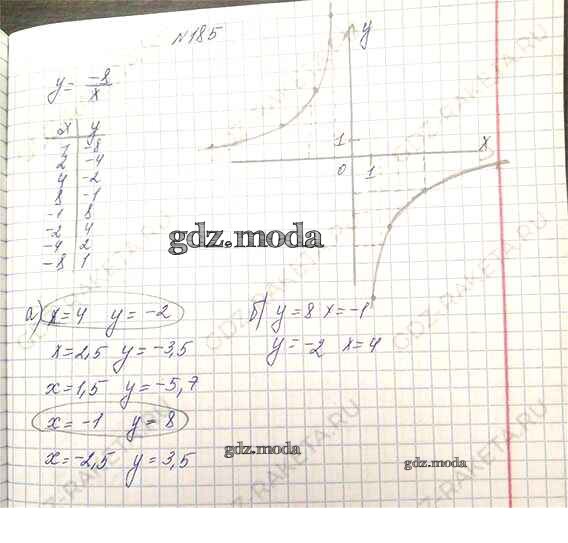 №185
y = -8/x
x y
1 -8
2 -4
4 -2
8 -1
-1 8
-2 4
-4 2
-8 1
y
x
1
0 1
gdz.moda
а) x=4 y=-2
x=2,5 y=-3,5
x=1,5 y=-5,7
x=-1 y=8
x=-2,5 y=3,5
б) y=8 x=-1
y=-2 x=4
gdz.moda
gdz.moda
GDZ-RAKETA.RU
GDZ-RAKETA.RU
GDZ-RAKETA.RU
GDZ-RAKETA.RU